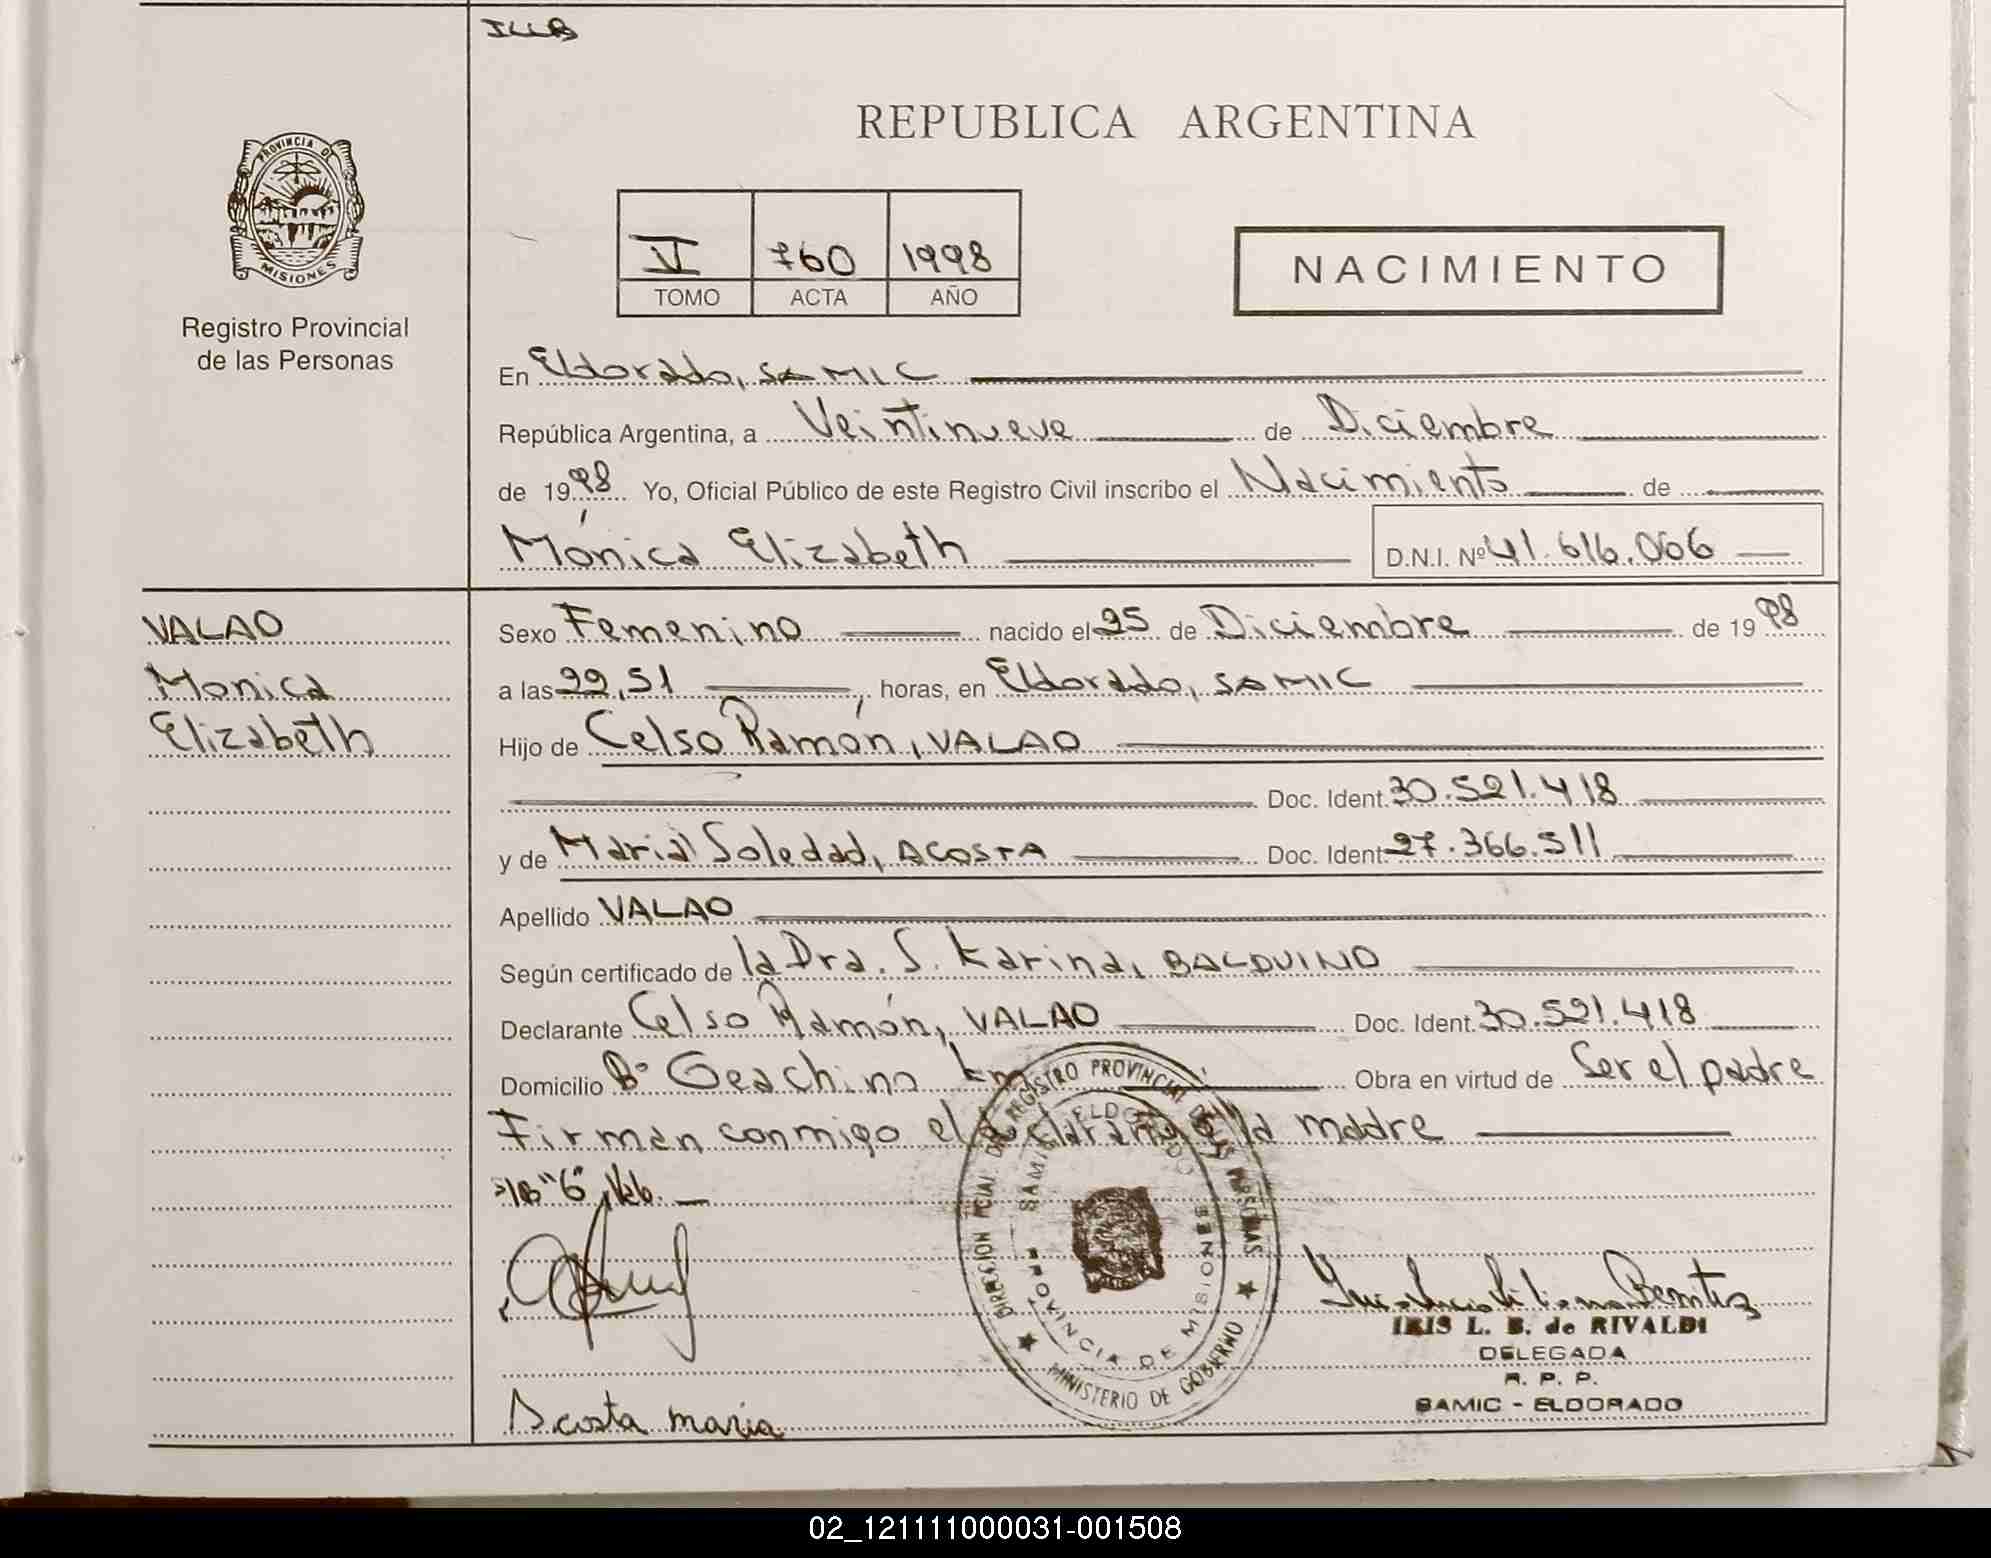 REPUBLICA ARGENTINA
PROVINCIA DE
MISIONES
Registro Provincial
de las Personas
V 760 1998
TOMO ACTA AÑO
NACIMIENTO
En Eldorado, SAMIC
República Argentina, a Veintinueve de Diciembre
de 1998 Yo, Oficial Público de este Registro Civil inscribo el Nacimiento de
Mónica Elizabeth D.N.I. Nº 41.616.066
VALAO
Monica
Elizabeth
Sexo Femenino nacido el 25 de Diciembre de 1998
a las 22,51 horas, en Eldorado, SAMIC
Hijo de Celso Ramón, VALAO
Doc. Ident. 30.521.418
y de Maria Soledad, ACOSTA Doc. Ident. 27.366.511
Apellido VALAO
Según certificado de la Dra. S. Karina, BALDUINO
Declarante Celso Ramón, VALAO Doc. Ident. 30.521.418
Domicilio Bº Geachino km Obra en virtud de Ser el padre
Firman conmigo el declarante y la madre
DIRECCION PCIAL. DEL REGISTRO PROVINCIAL DE LAS PERSONAS
MINISTERIO DE GOBIERNO
SAMIC ELDORADO
PROVINCIA DE MISIONES
IRIS L. B. de RIVALDI
DELEGADA
R. P. P.
SAMIC - ELDORADO
Acosta maria
02_121111000031-001508